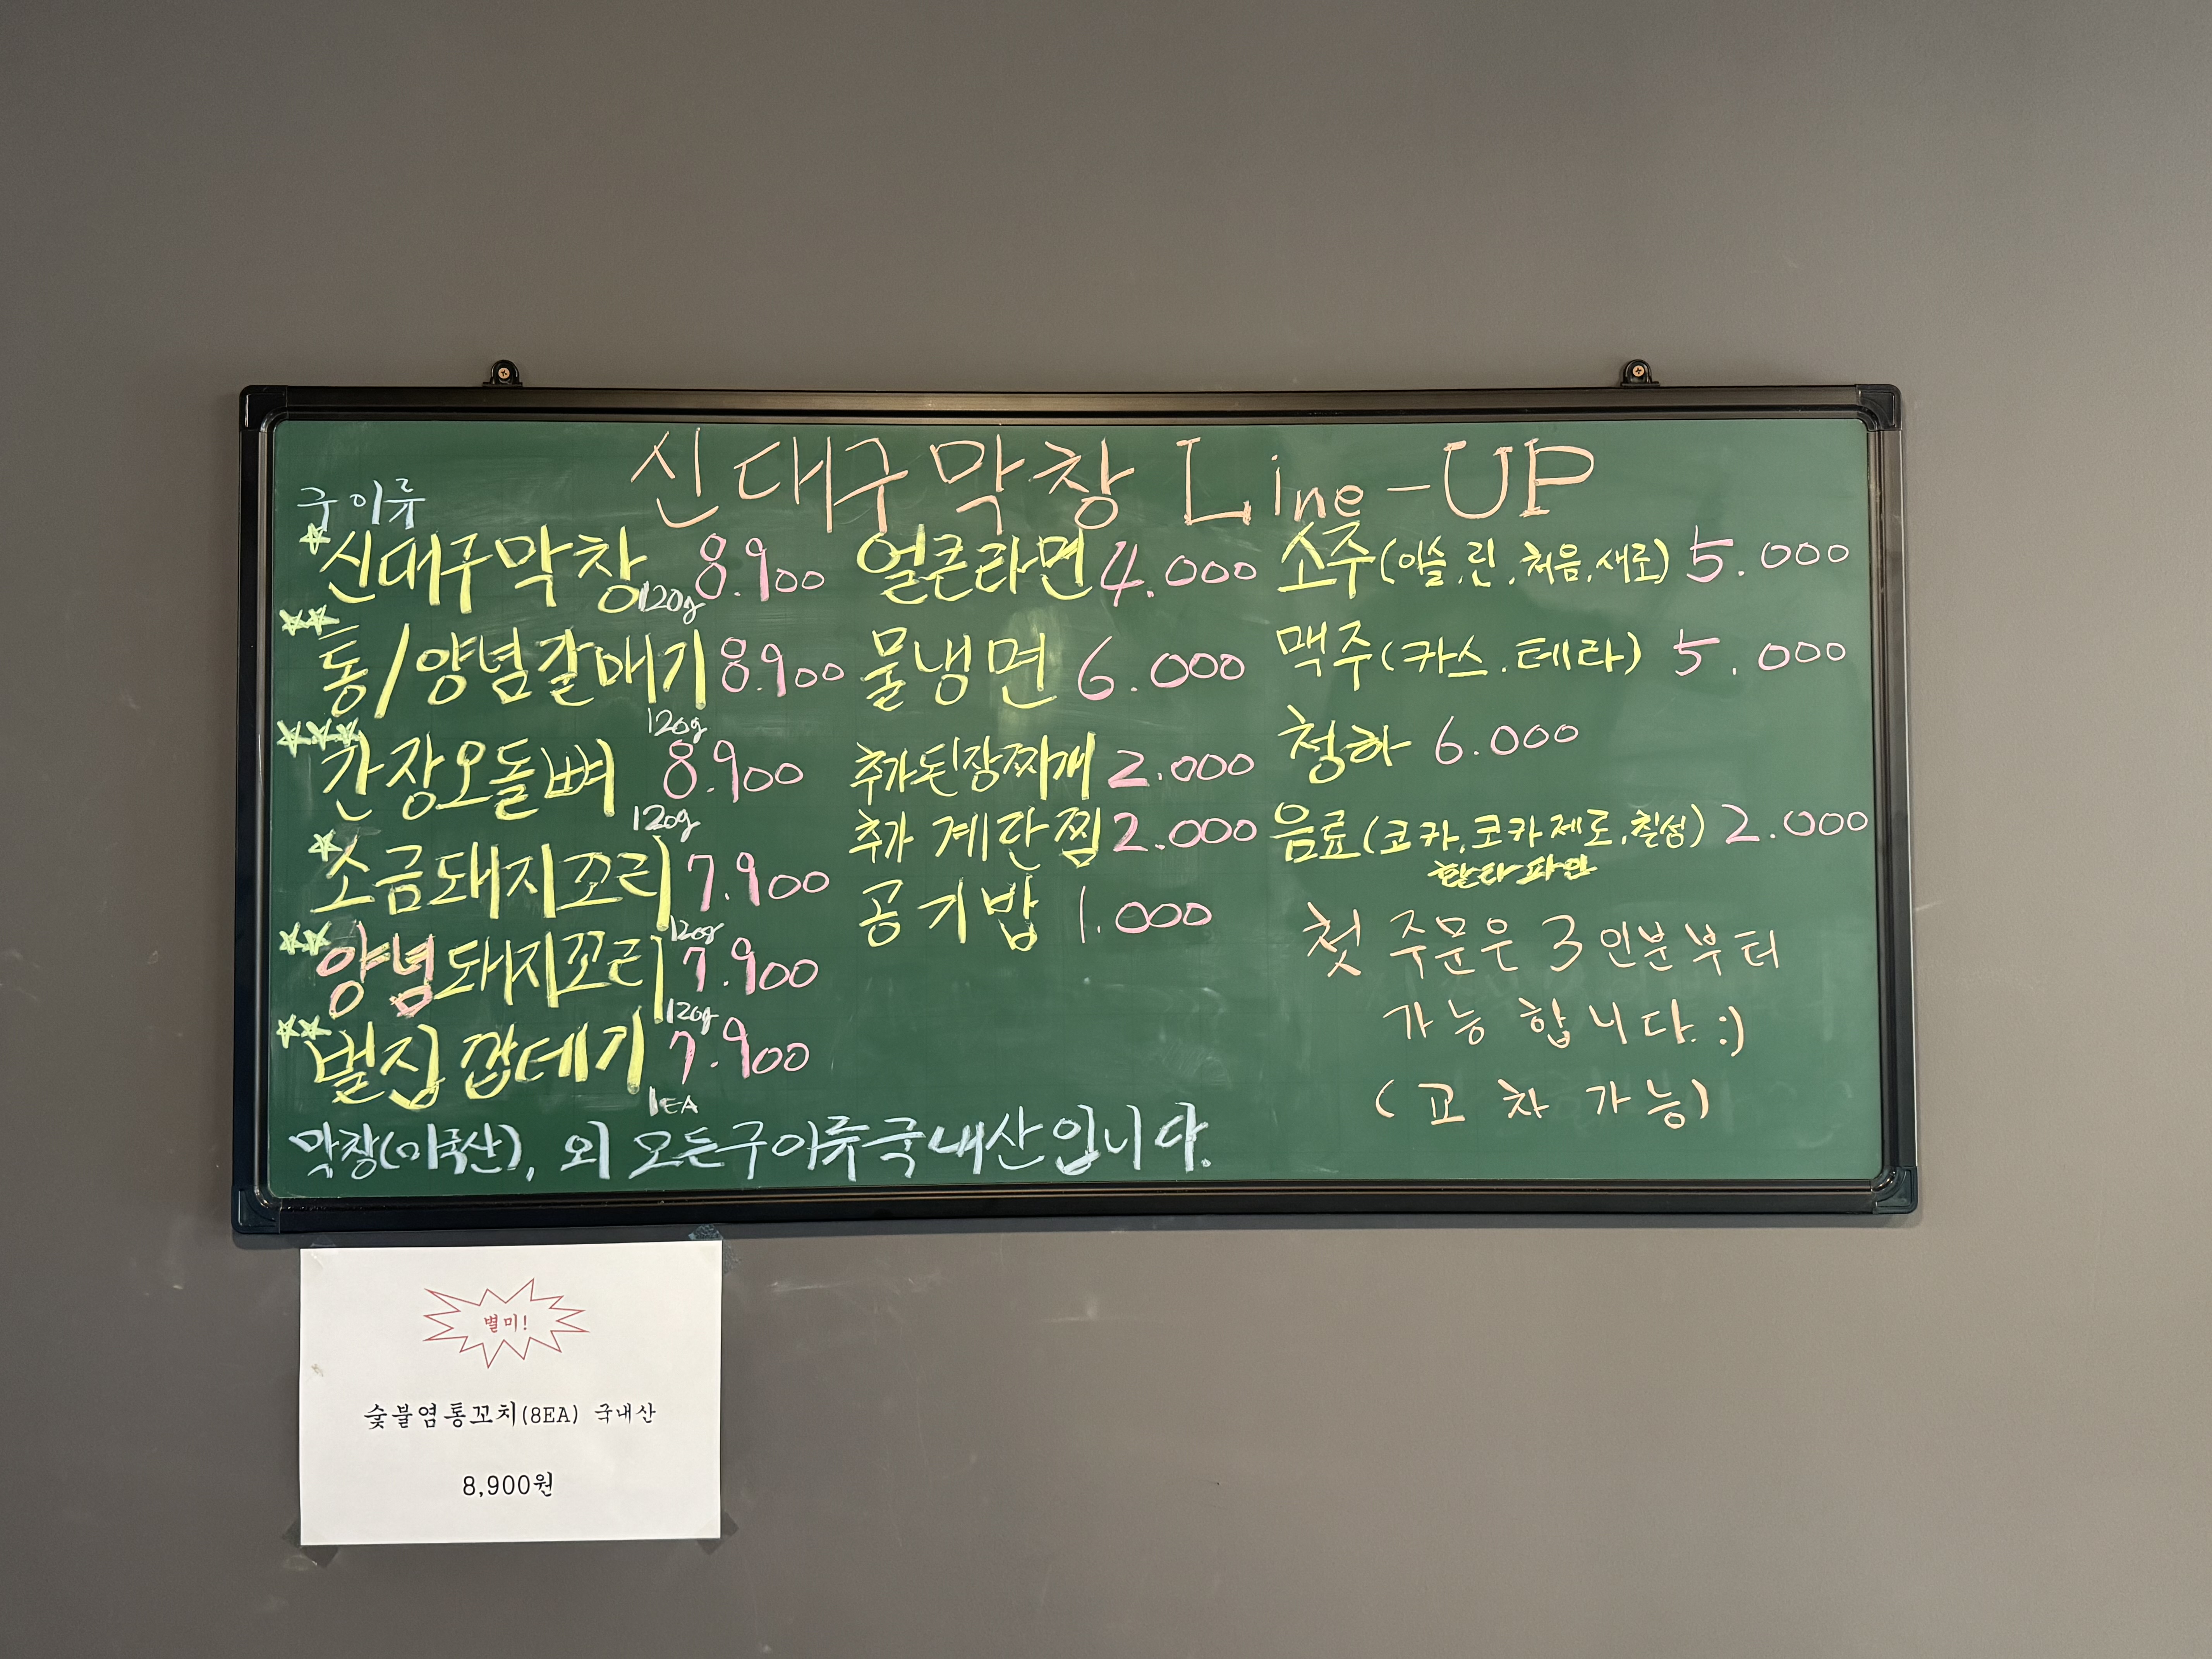 신대구막창 Line-UP
구이류
신대구막창 120g 8.900
통/양념갈매기 120g 8.900
간장오돌뼈 120g 8.900
소금돼지꼬리 120g 7.900
양념돼지꼬리 120g 7.900
벌집껍데기 1EA 7.900
막창(미국산), 외 모든구이류국내산입니다.
얼큰라면 4.000
물냉면 6.000
추가된장찌개 2.000
추가 계란찜 2.000
공기밥 1.000
소주(이슬.린.처음.새로) 5.000
맥주(카스.테라) 5.000
청하 6.000
음료(코카,코카제로,칠성) 2.000
환타파인
첫 주문은 3인분부터
가능 합니다. :)
(교차가능)
별미!
숯불염통꼬치(8EA) 국내산
8,900원